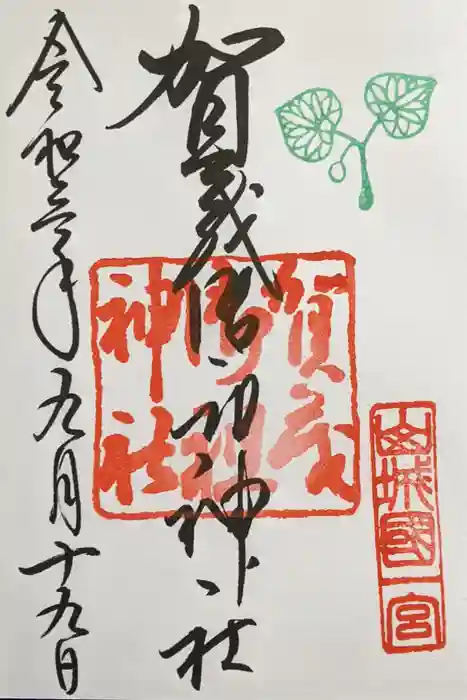 山城國一宮
賀茂御祖神社
賀茂
御祖
神社
令和三年九月十九日